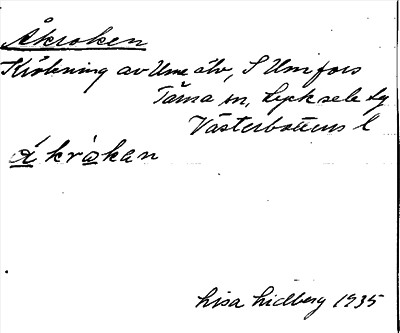 Åkroken
Krökning av Ume älv, S Umfors
Tärna sn, Lycksele tg
Västerbottens l
å`krò̱kan
Lisa Lidberg 1935